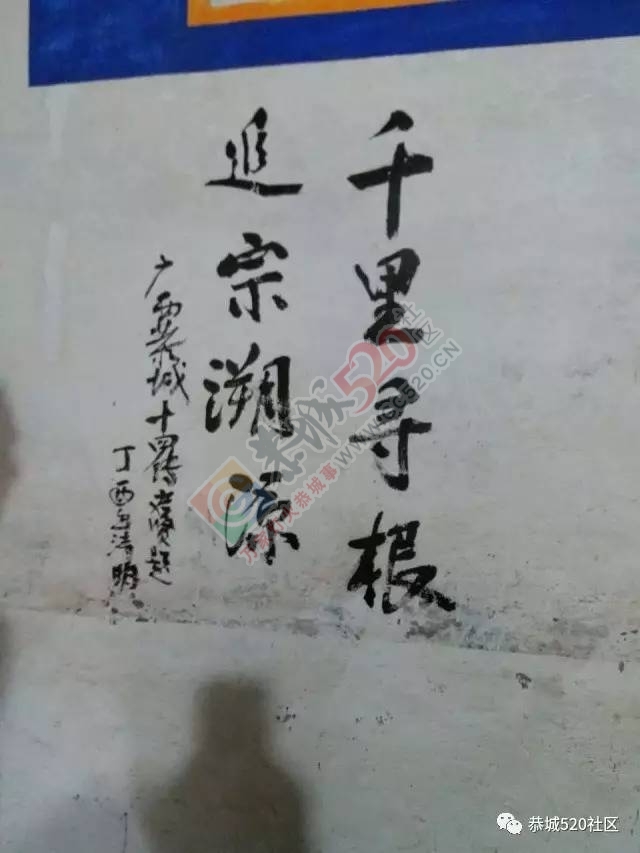 千里寻根
追宗溯源
广西恭城十四传裔题
丁酉年清明
恭城520社区
WWW.GC520.CN
恭城520社区